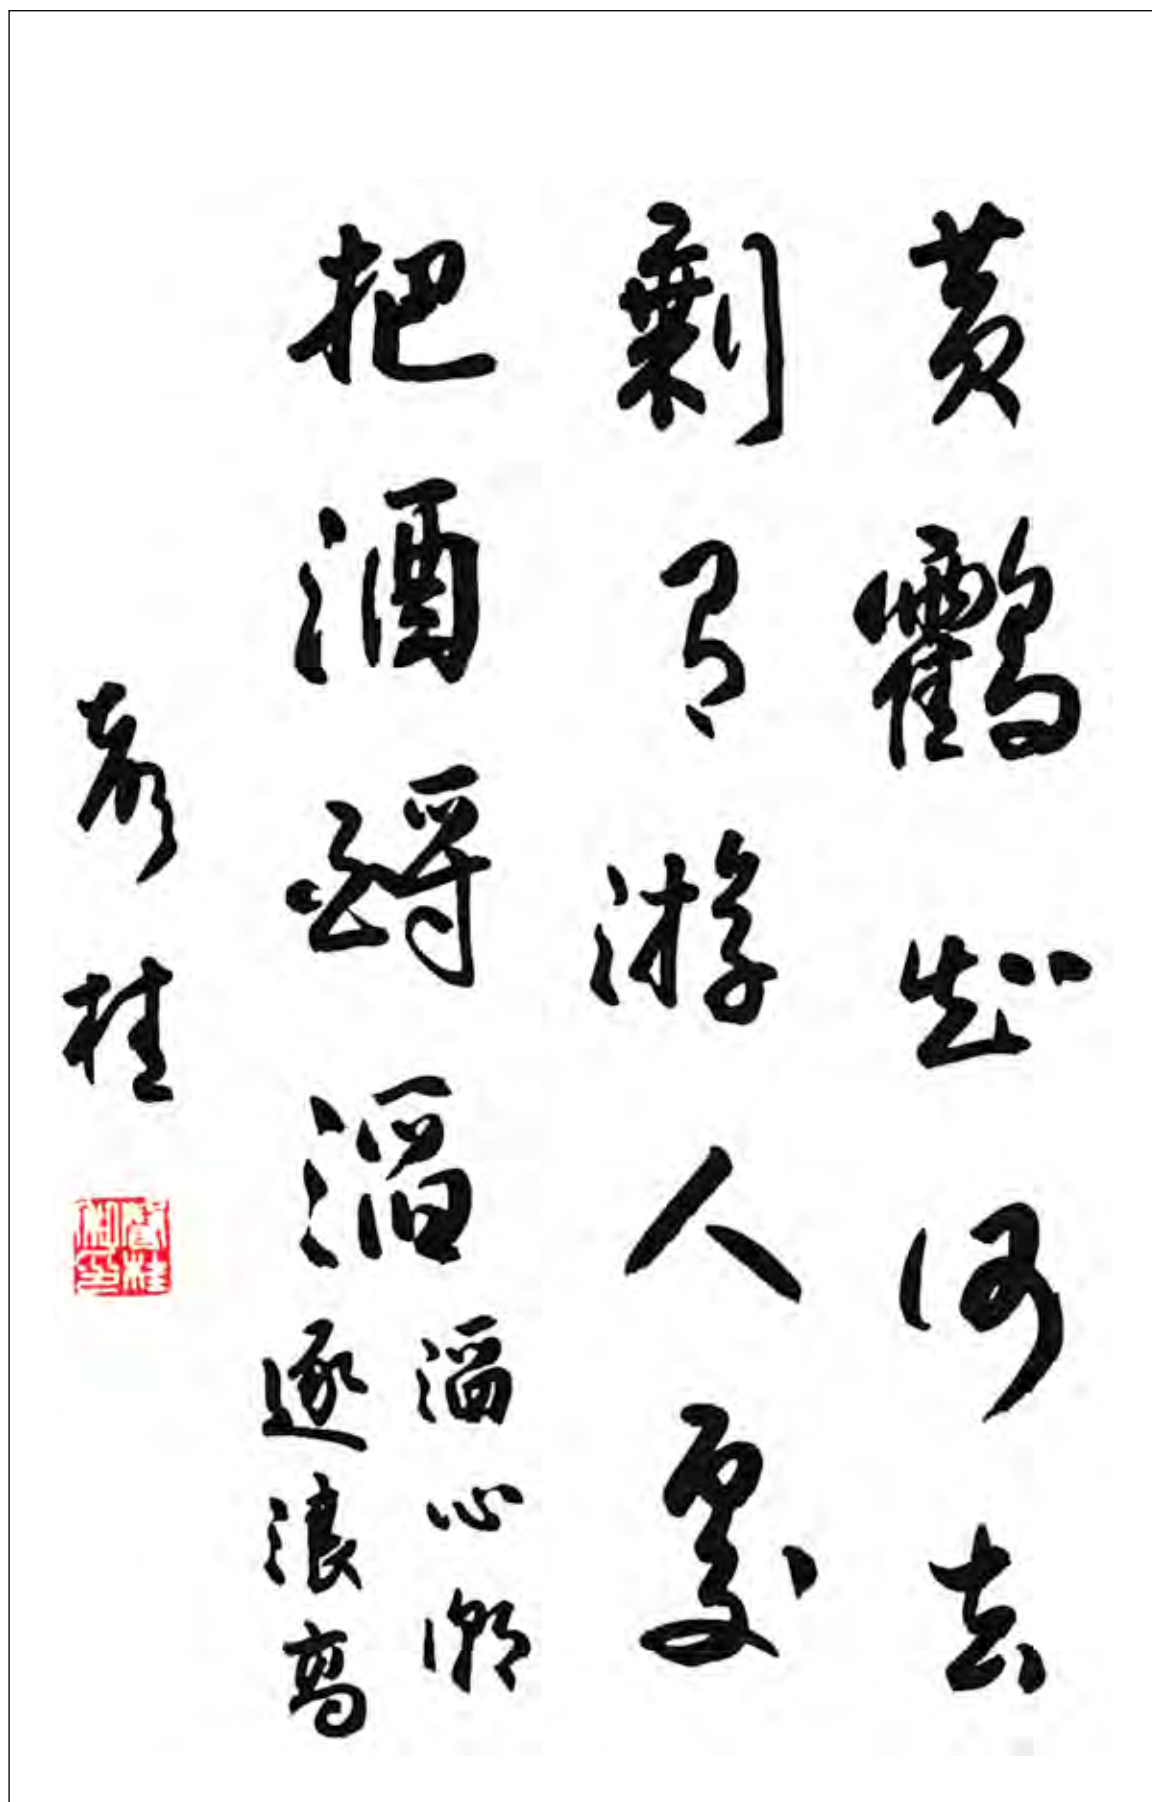 黄鶴知何去
剩有游人處
把酒酹滔
滔心潮
逐浪高
桂